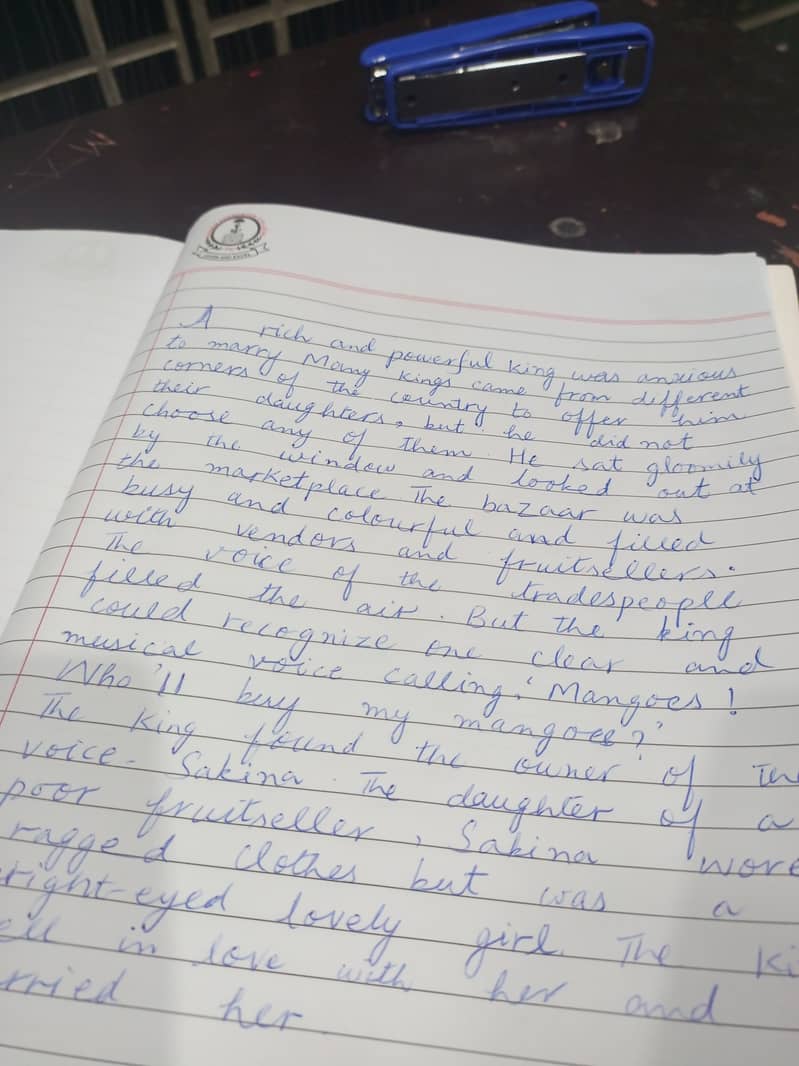 A rich and powerful king was anxious
to marry Many kings came from different
corners of the country to offer him
their daughters, but he did not
choose any of them. He sat gloomily
by the window and looked out at
the marketplace The bazaar was
busy and colourful and filled
with vendors and fruitsellers.
The voice of the tradespeople
filled the air. But the king
could recognize one clear and
musical voice calling: 'Mangoes!
Who'll buy my mangoes?'
The king found the owner of the
voice - Sakina. The daughter of a
poor fruitseller, Sakina wore
ragged clothes but was a
right-eyed lovely girl. The ki
ell in love with her and
rried her.